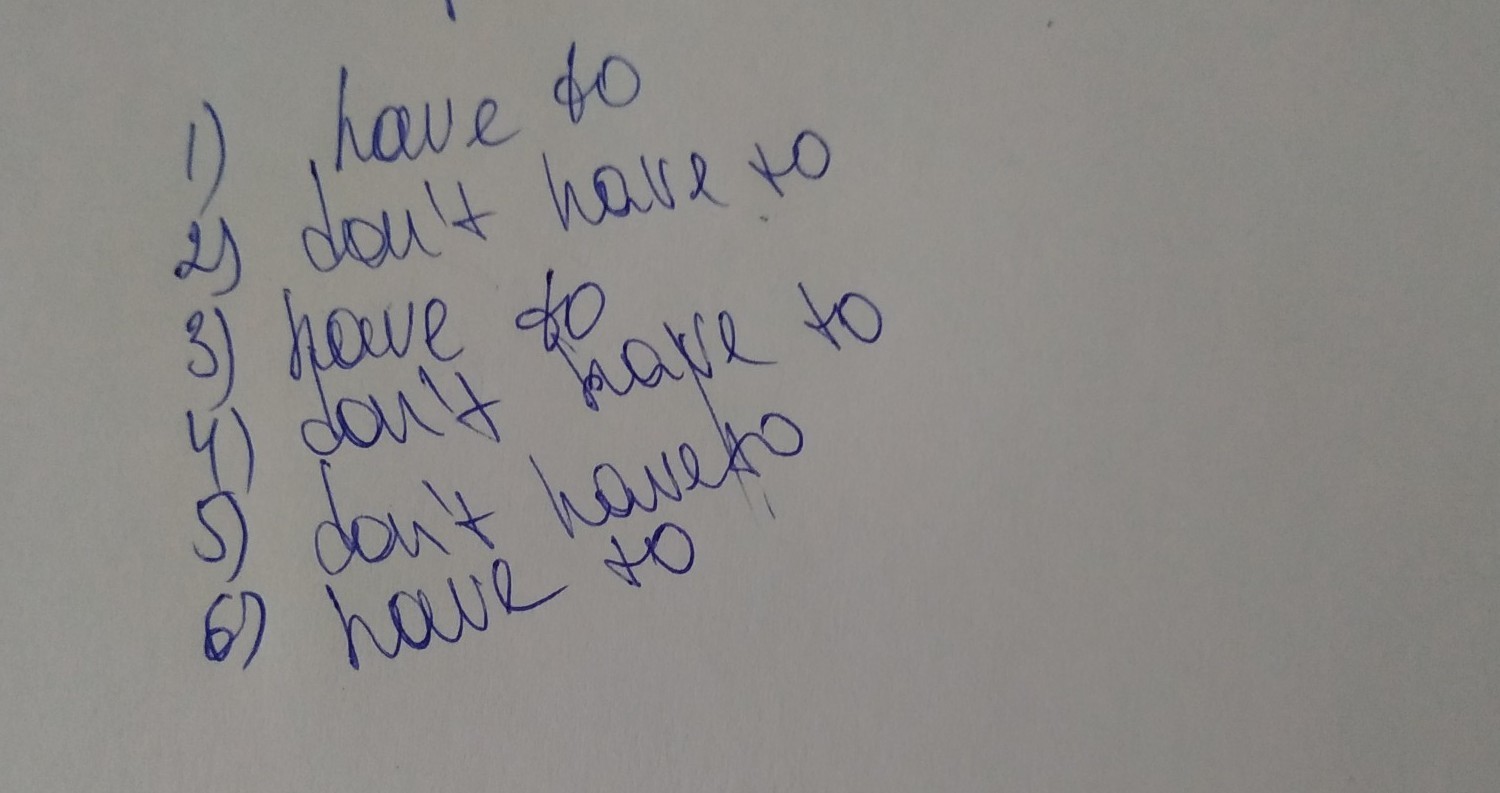 1) have to
2) don't have to
3) have to
4) don't have to
5) don't have to
6) have to